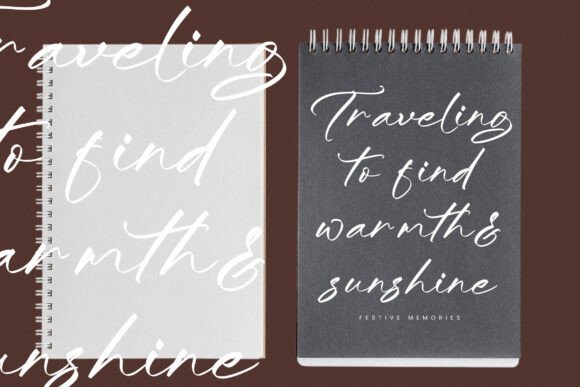 Traveling
to find
warmth&
sunshine
Traveling
to find
warmth&
sunshine
FESTIVE MEMORIES